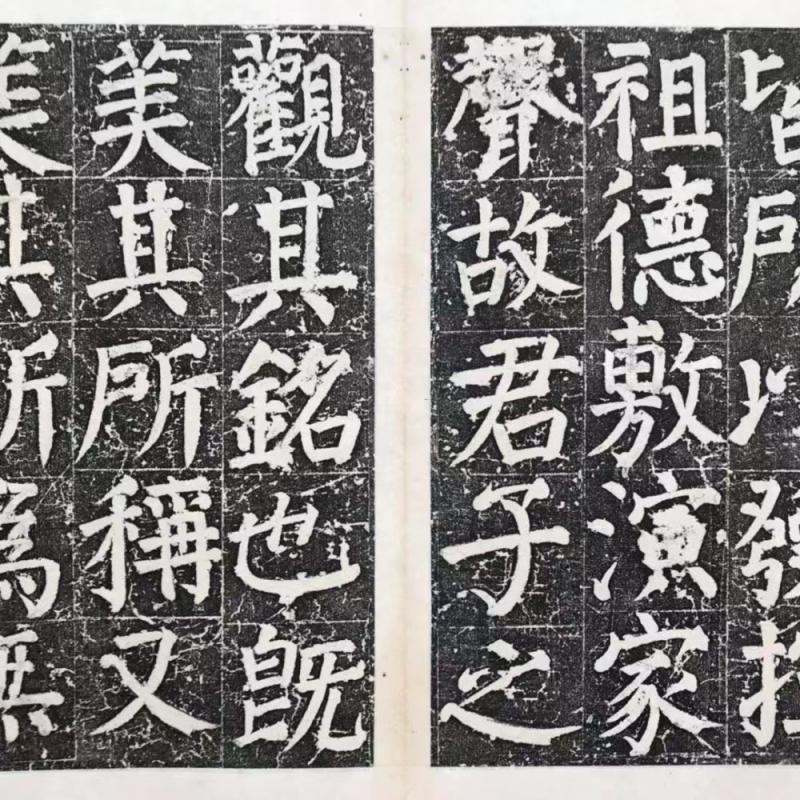 皆所以發揮
祖德敷演家
聲故君子之
觀其銘也既
美其所稱又
美其所為無